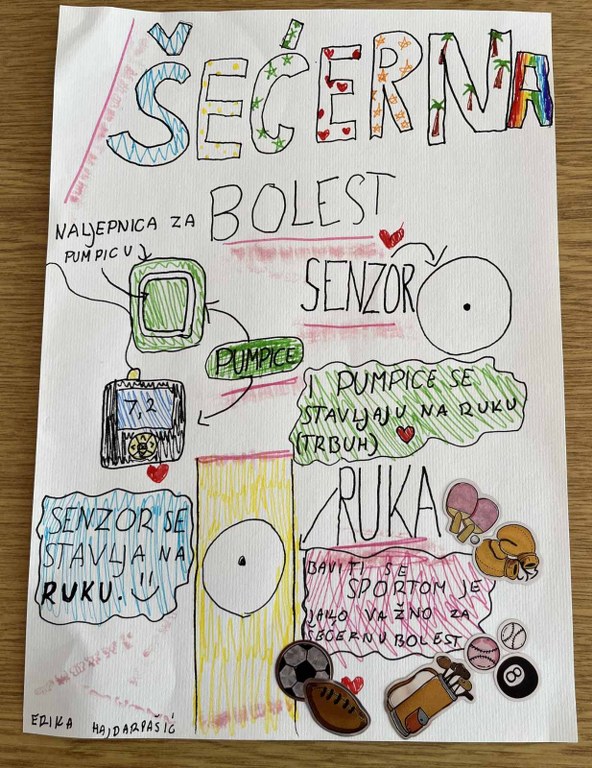 ŠEĆERNA
BOLEST
NALJEPNICA ZA
PUMPICU
SENZOR
PUMPICE
7,2
I PUMPICE SE
STAVLJAJU NA RUKU
(TRBUH)
RUKA
SENZOR SE
STAVLJA NA
RUKU.
BAVITI SE
SPORTOM JE
JAKO VAŽNO ZA
ŠEĆERNU BOLEST
8
ERIKA HAJDARPAŠIĆ